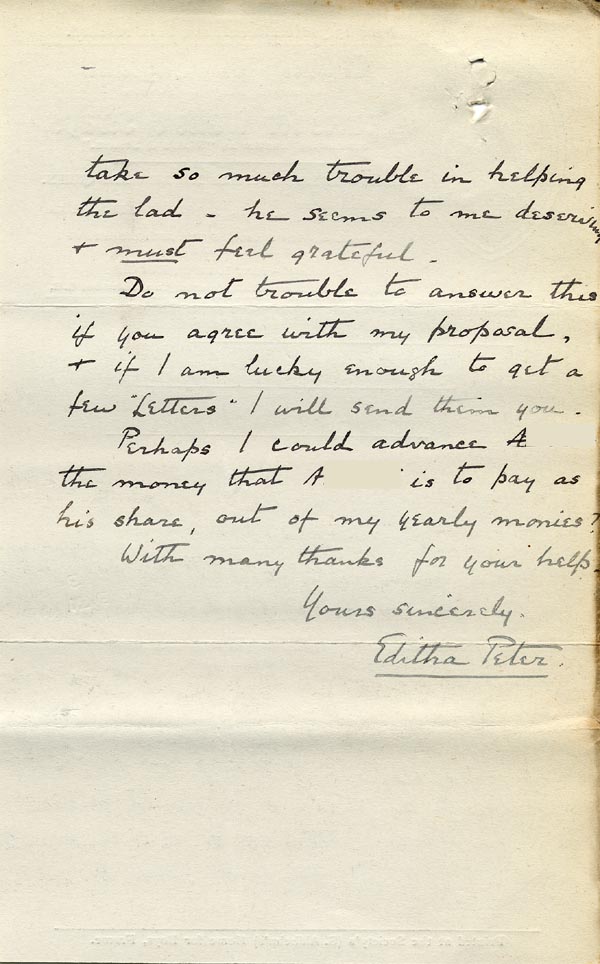 take so much trouble in helping
the lad - he seems to me deserving
+ must feel grateful.
Do not trouble to answer this
if you agree with my proposal,
+ if I am lucky enough to get a
few "Letters" I will send them you.
Perhaps I could advance A
the money that A is to pay as
his share, out of my yearly monies?
With many thanks for your help
Yours sincerely.
Editha Peter.